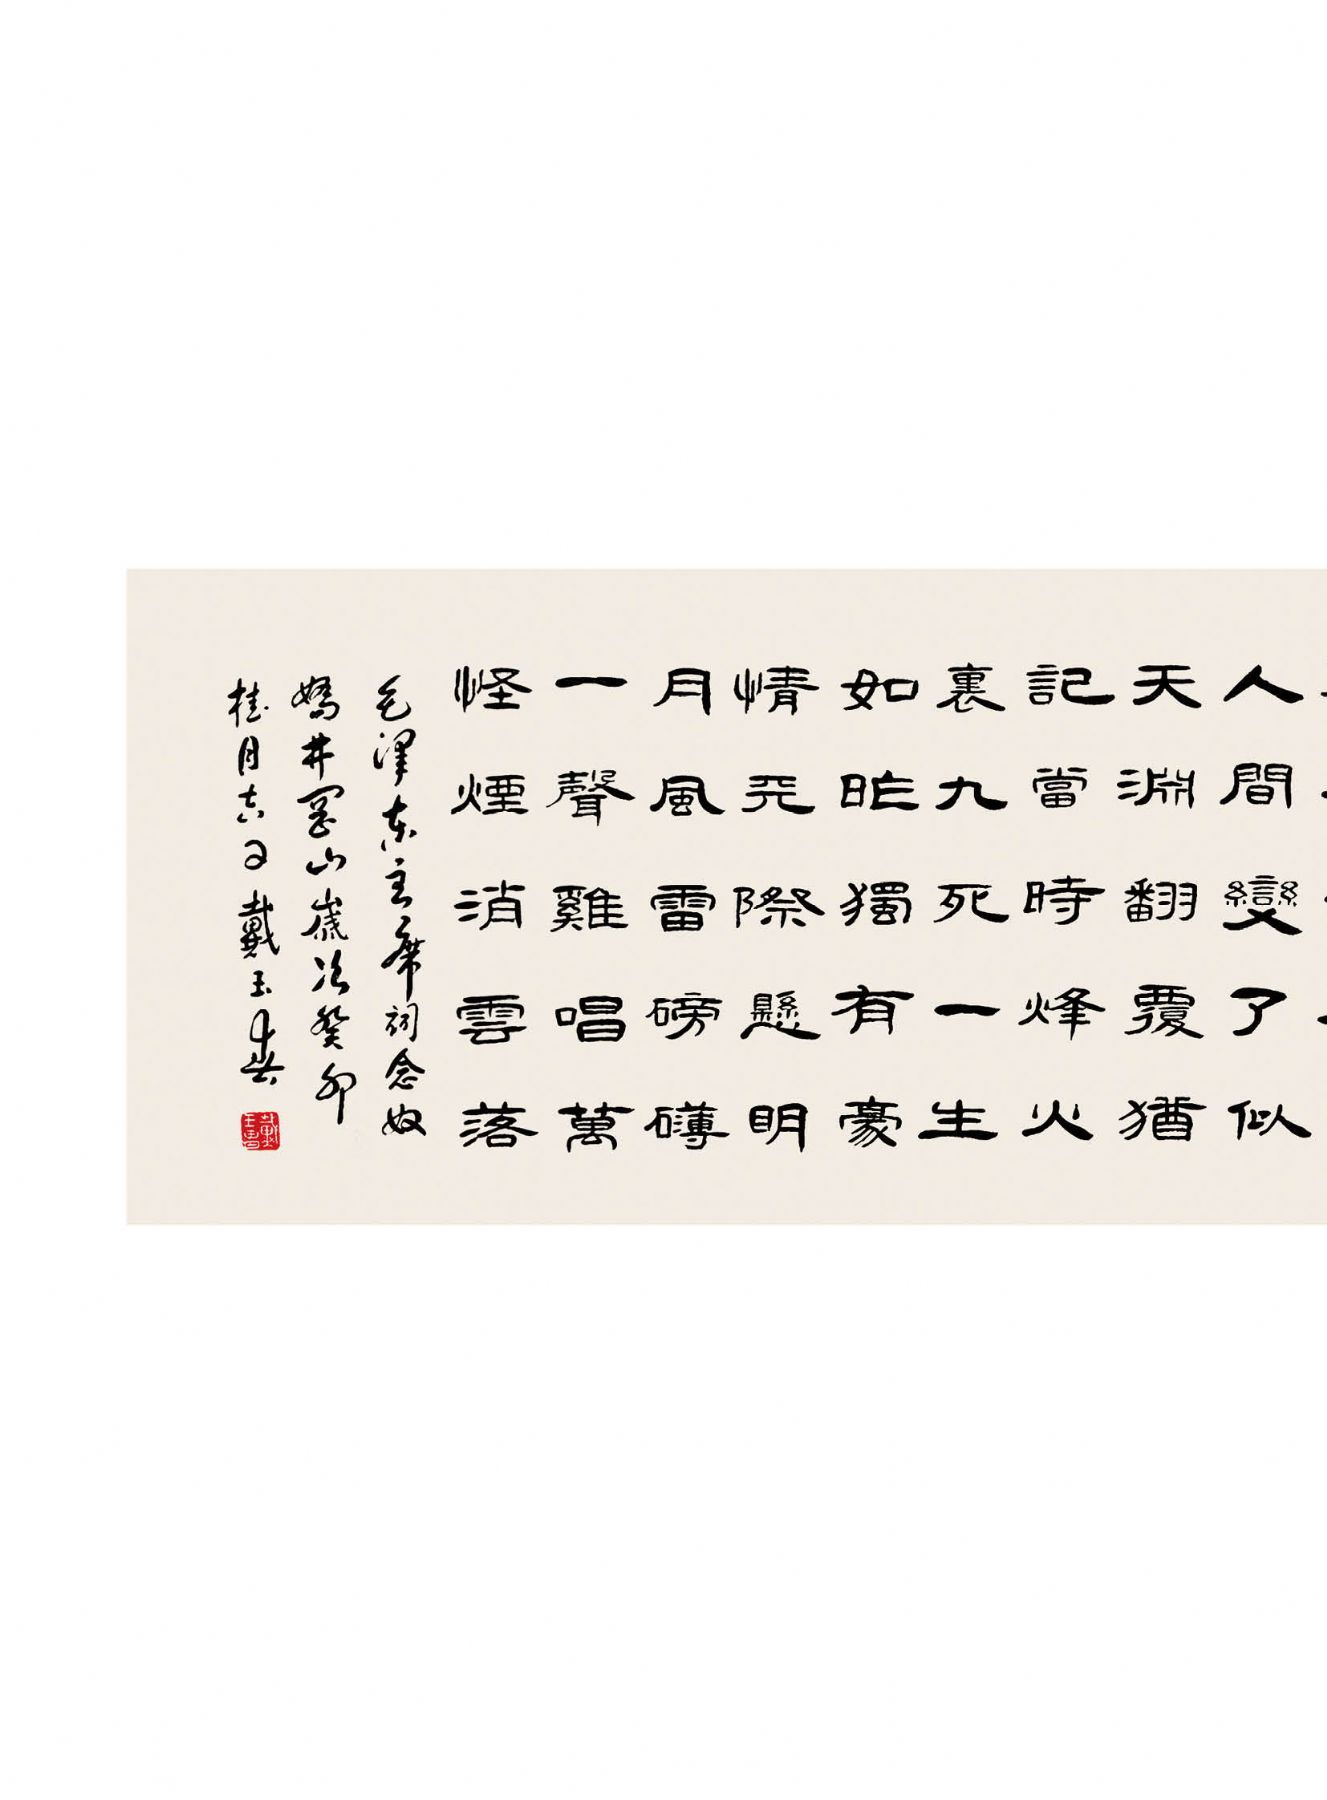 人間變了似
天淵翻覆猶
記當時烽火
裏九死一生
如昨獨有豪
情天際懸明
月風雷磅礴
一聲雞唱萬
怪煙消雲落
毛澤東主席詞念奴
嬌井岡山歲次癸卯
桂月吉日戴玉春